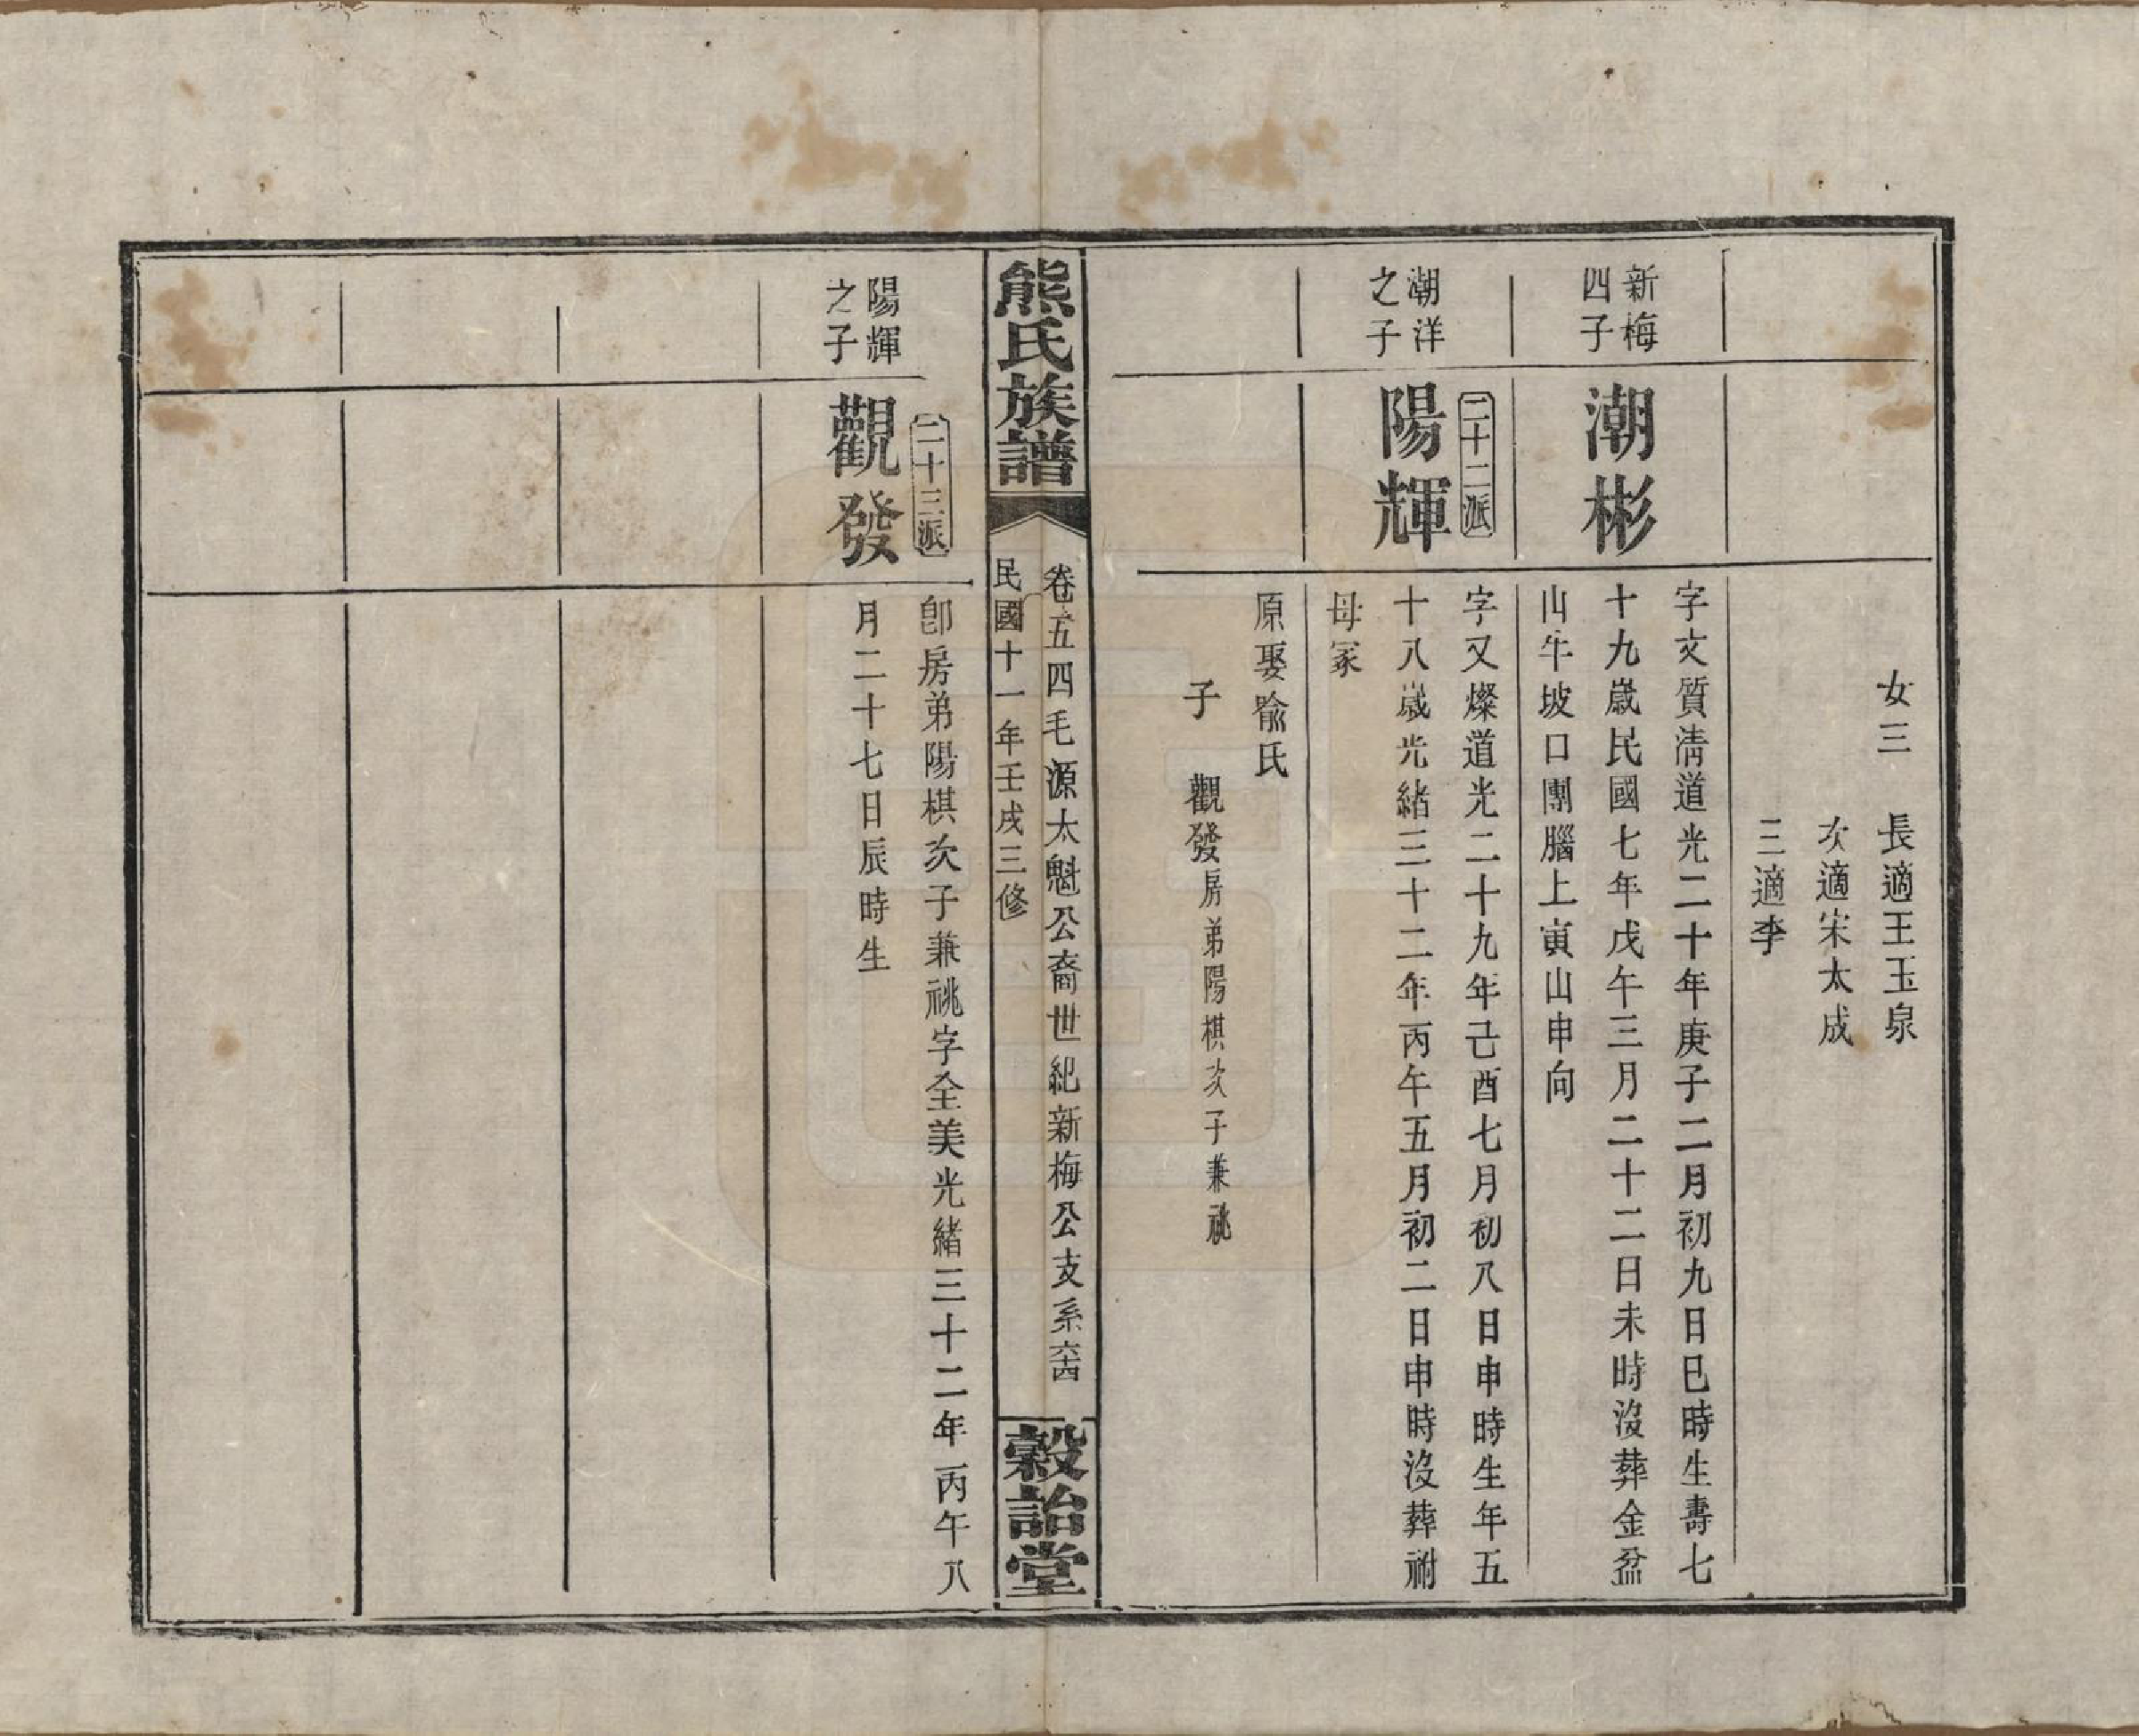 女三　長適王玉泉
次適宋太成
三適李
新梅
四子
潮彬
字文質清道光二十年庚子二月初九日巳時生壽七
十九歲民國七年戊午三月二十二日未時沒葬金盆
山牛坡口團腦上寅山申向
潮洋
之子
二十二派
陽輝
字又燦道光二十九年己酉七月初八日申時生年五
十八歲光緒三十二年丙午五月初二日申時沒葬祔
母冢
原娶喩氏
子　觀發房弟陽棋次子兼祧
熊氏族譜
卷五四毛源太魁公裔世紀新梅公支系六四
民國十一年壬戌三修
穀詒堂
陽輝
之子
二十三派
觀發
卽房弟陽棋次子兼祧字全美光緒三十二年丙午八
月二十七日辰時生